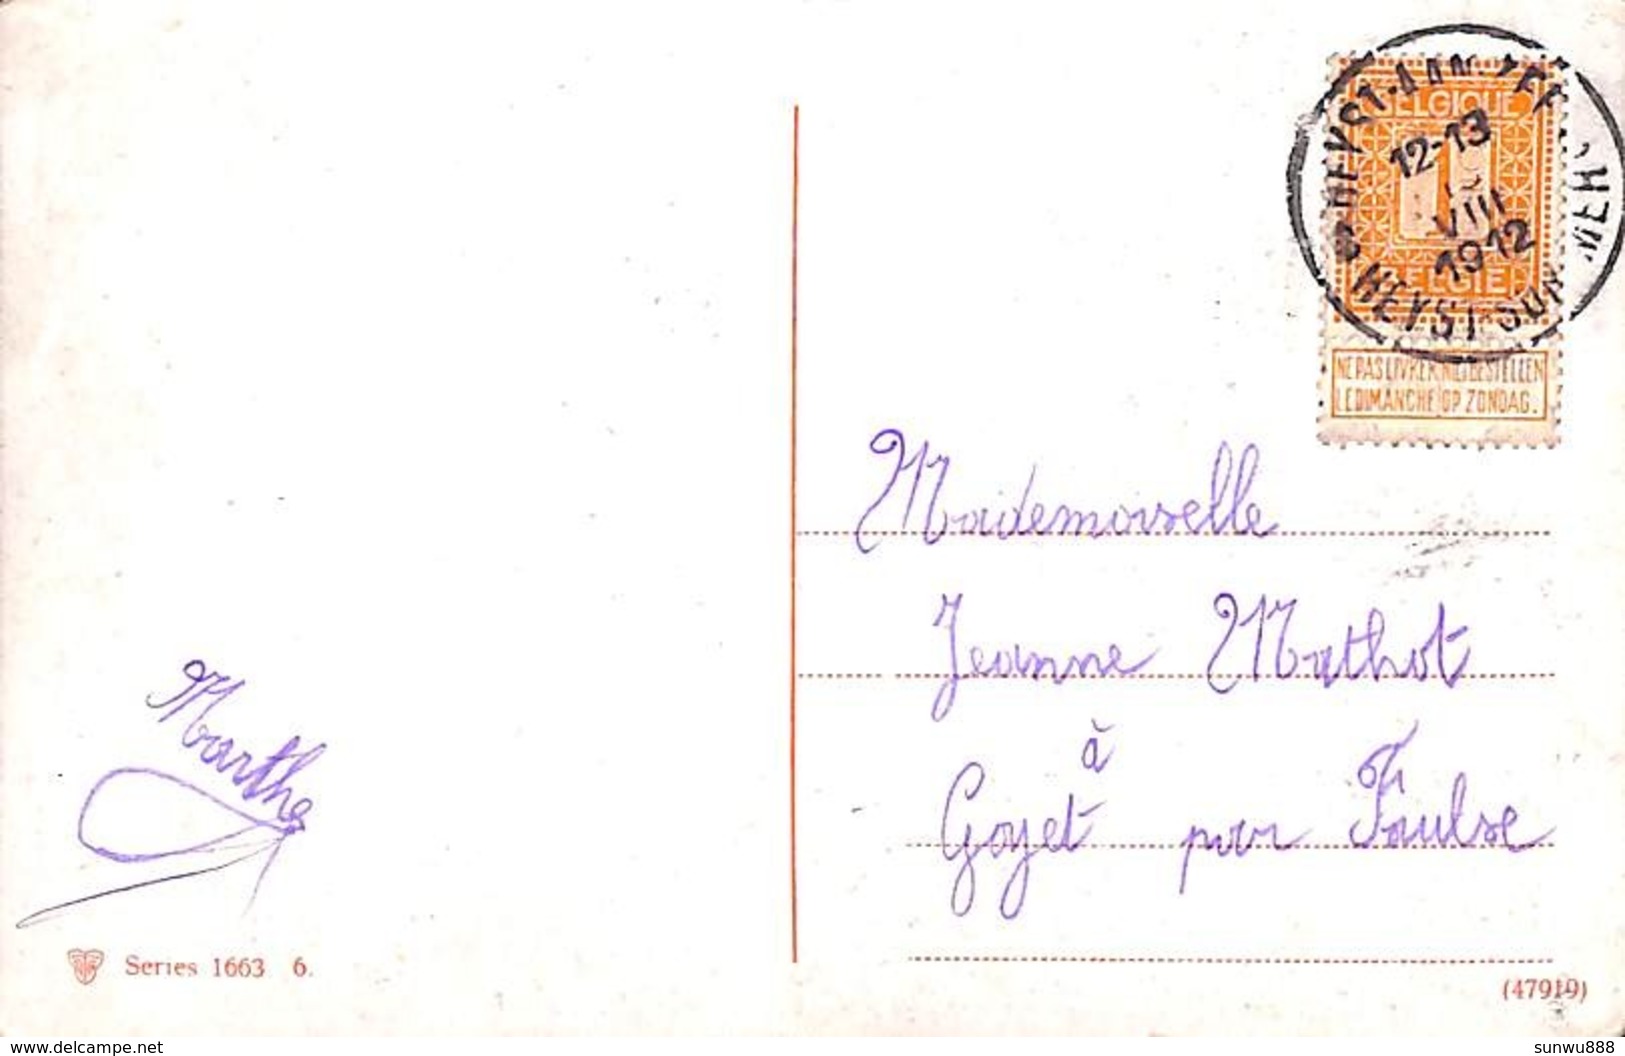 BELGIQUE
12-13
VIII
1912
BELGIE
HEYST-SUR-
NE PAS LIVRER NIET BESTELLEN
LE DIMANCHE OP ZONDAG.
Mademoiselle
Jeanne Mathot
à
Goyet par Faulse
Marthe
Series 1663 6.
(47919)
www.delcampe.net
sunwu888